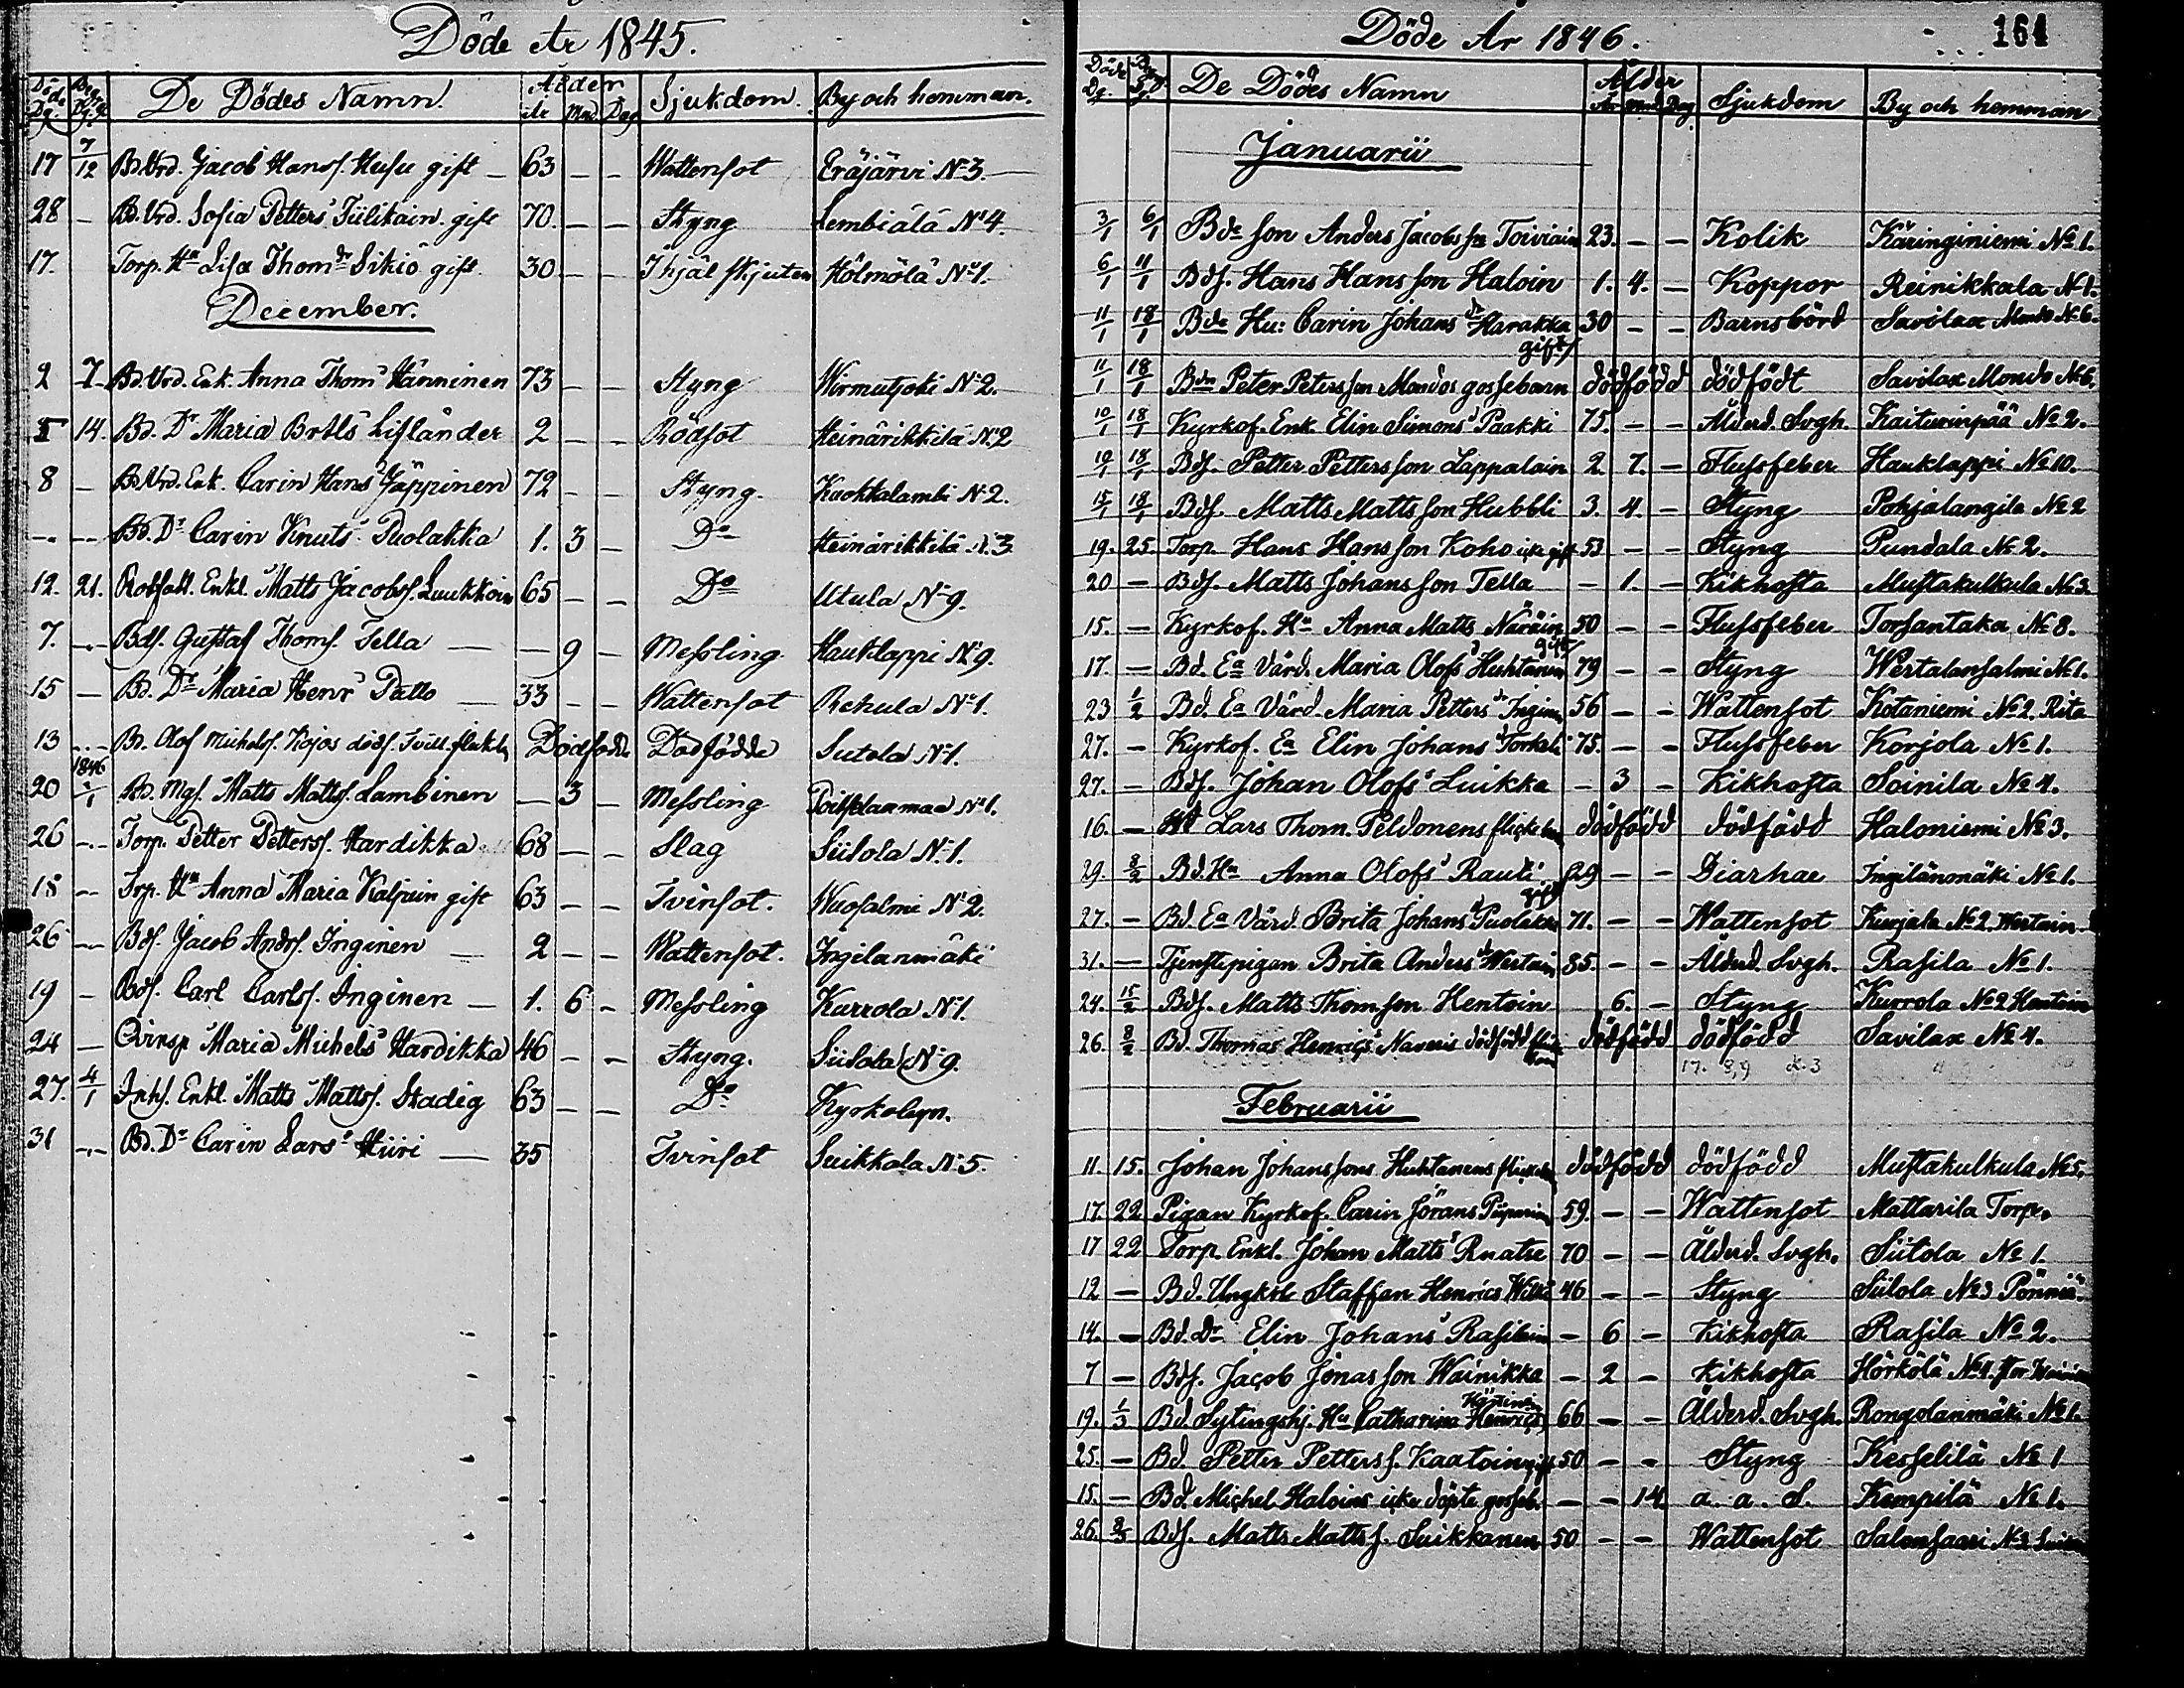 Döde År 1845.
Döde Dg. Begr. Dg. De Dödes Namn. Ålder År Mnd. Dag Sjukdom. By och hemman.
17 7/12 Bd.Vrd. Jacob Hansf. Husu gift — 63 — — Wattensot Eräjärvi No 3. —
28 — Bd.Vrd. Sofia Petters Tiilikain gift 70. — — Styng Lembiälä No 4.
17. Torp. Hu Lisa Thomdr Sikiö gift. 30 — — Ihjäl skjuten Hölmölä No 1.
December.
2 7 Bd. Vrd. Enk. Anna Thoms Hänninen 73 — — Styng Wirmutjoki No 2.
5 14. Bd. Dr Maria Brtls Lifländer 2 — — Rödsot Heinärikkilä No 2
8 — Bd.Vrd. Enk. Carin Hans Jäppinen 72 — — Styng. Kuokkalambi No 2.
-.- -.- Bd. Dr Carin Knuts Puolakka 1. 3 — Do Heinärikkilä No 3
12. 21. Enkl. Matts Jacobsf. Luukkoin 65 — — Do Utula No 9.
7. -.- Bdf. Gustaf Thomf. Tella — — 9 — Messling Hauklappi No 9.
15 — Bd. Dr Maria Henr Patto — 33 — — Wattensot Rehula No 1.
13 -.- Bd. Olof Michelsf. Kojos dödf. Tvill. flickb. Dödfödde Dödfödde Sutola No 1.
20 1846 Bd. Mgf. Matts Mattsf. Lambinen — 3 — Messling No 1.
26 -.- Torp. Petter Pettersf. Hardikka 68 — — Slag Siitola No 1.
18 — Trp. Hu Anna Maria Kaljuin gift 63 — — Tvinsot. Wuosalmi No 2.
26 — Bdf. Jacob Andrsf. Inginen — 2 — — Wattensot. Ingilanmäki
19 — Bdf. Carl Carlsf. Inginen — 1. 6 — Messling Kurrola No 1.
24 — Qvinsp Maria Michels Hardikka 46 — — Styng. Siitola No 9.
27. 4/1 Inhs. Enkl. Matts Mattsf. Stadig 63 — — Do Kyrkobyn.
31 -.- Bd. Dr Carin Lars Hiiri — 35 Tvinsot Suikkala No 5.
Döde År 1846.
164
Döde Dg. Begr. Dg. De Dödes Namn Ålder År Mnd Dag Sjukdom By och hemman
Januarii
3/1 6/1 Bde son Anders Jacobsson Toiviain 23. — — Kolik Käringiniemi No 1.
6/1 11/1 Bdf. Hans Hansson Haloin 1. 4. — Koppor Reinikkala No 1.
11/1 18/1 Bde Hu: Carin Johans dr Harakka gift 30 — — Barnsbörd Savilax Mondo No 6.
11/1 18/1 Bdn Peter Petersson Mondos gossebarn dödfödd dödfödt Savilax Mondo No 6.
10/1 18/1 Kyrkof. Enk. Elin Simons Paakki 75. — — Ålderd. Svgh. Kaiturinpää No 2.
10/1 18/1 Bdf. Petter Pettersson Lappalain 2. 7. — Flussfeber Hauklappi No 10.
15/1 18/1 Bdf. Matts Mattsson Hubbli 3. 4. — Styng Pohjalangila No 2
19. 25. Torp. Hans Hansson Koho icke gift 53 — — Styng Pundala No 2.
20 — Bdf. Matts Johansson Tella — 1. — Kikhosta Mustakulkula No 3.
15. — Kyrkof. Hu Anna Matts Näräin gift 50 — — Flussfeber Torsantaka No 8.
17. — Bd. Ea Värd. Maria Olofs Huhtanen 79 — — Styng Wertalansalmi No 1.
23 1/2 Bd. Ea Värd. Maria Petters dr Inginen 56 — — Wattensot Kotaniemi No 2. Rita
27. — Kyrkof. Ea Elin Johans dr Torkeli 75. — — Flussfeber Korjola No 1.
27. — Bdf. Johan Olofs Luikka — 3 — Kikhosta Soinila No 4.
16. — Lars Thom. Peldonens flickebarn dödfödd dödfödd Haloniemi No 3.
29. 8/2 Bd. Hu Anna Olofs Rauti gift 29 — — Diarhae Ingilänmäki No 1.
27. — Bd. Ea Värd. Brita Johans dr Puolakka 71. — — Wattensot Kurjala No 2. Wertain
31. — Tjenstepigan Brita Anders dr Wertain 85. — — Ålderd. Svgh. Rasila No 1.
24. 15/2 Bdf. Matts Thomson Hentoin 6. — Styng Kurrola No 2 Hentoin
26. 8/2 Bd. Thomas Henrics Naveris dödfödd flickebarn dödfödd dödfödd Savilax No 4.
Februarii
11. 15. Johan Johanssons Huhtanens flickebn dödfödd dödfödd Mustakulkula No 5.
17. 22. Pigan Kyrkof. Carin Jörans Piiparinen 59. — — Wattensot Mattarila Torp.
17 22 Torp. Enkl. Johan Matts Ruatse 70 — — Ålderd. Svgh. Siitola No 1.
12 — Bd. Ungkrl Staffan Henrics Wilska 46 — — Styng Siitola No 3 Pönniä.
14. — Bd. Dr Elin Johans Rasilain — 6 — Kikhosta Rasila No 2.
7 — Bdf. Jacob Jonasson Wainikka — 2 — Kikhosta Hörkölä No 4.
19. 1/3 Bd. Sytingshj. Hu Catharina Henrics Häyrinen 66 — — Ålderd. Svgh. Rongolanmäki No 1.
25. — Bd. Petter Pettersf. Kaatoin gift 50 — — Styng Kesselilä No 1
15. — Bd. Michel Haloins icke döpte gosseb. — — 14 a. a. S. Kempilä No 1.
26. 8/3 Bdf. Matts Mattsf. Suikkanen 50 — — Wattensot Salonsaari No 3